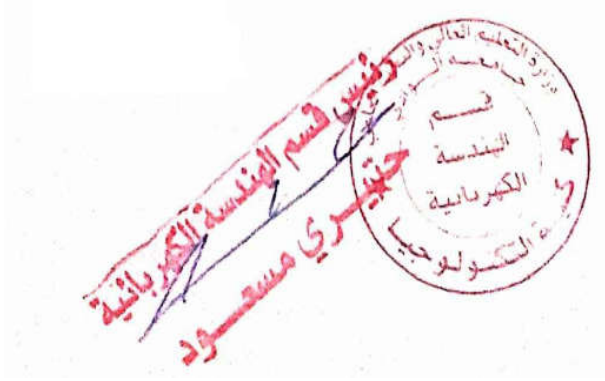 رئيس قسم الهندسة الكهربائية
مسعود
وزارة التعليم العالي
جامعة
قسم
الهندسة
الكهربائية
كلية التكنولوجيا